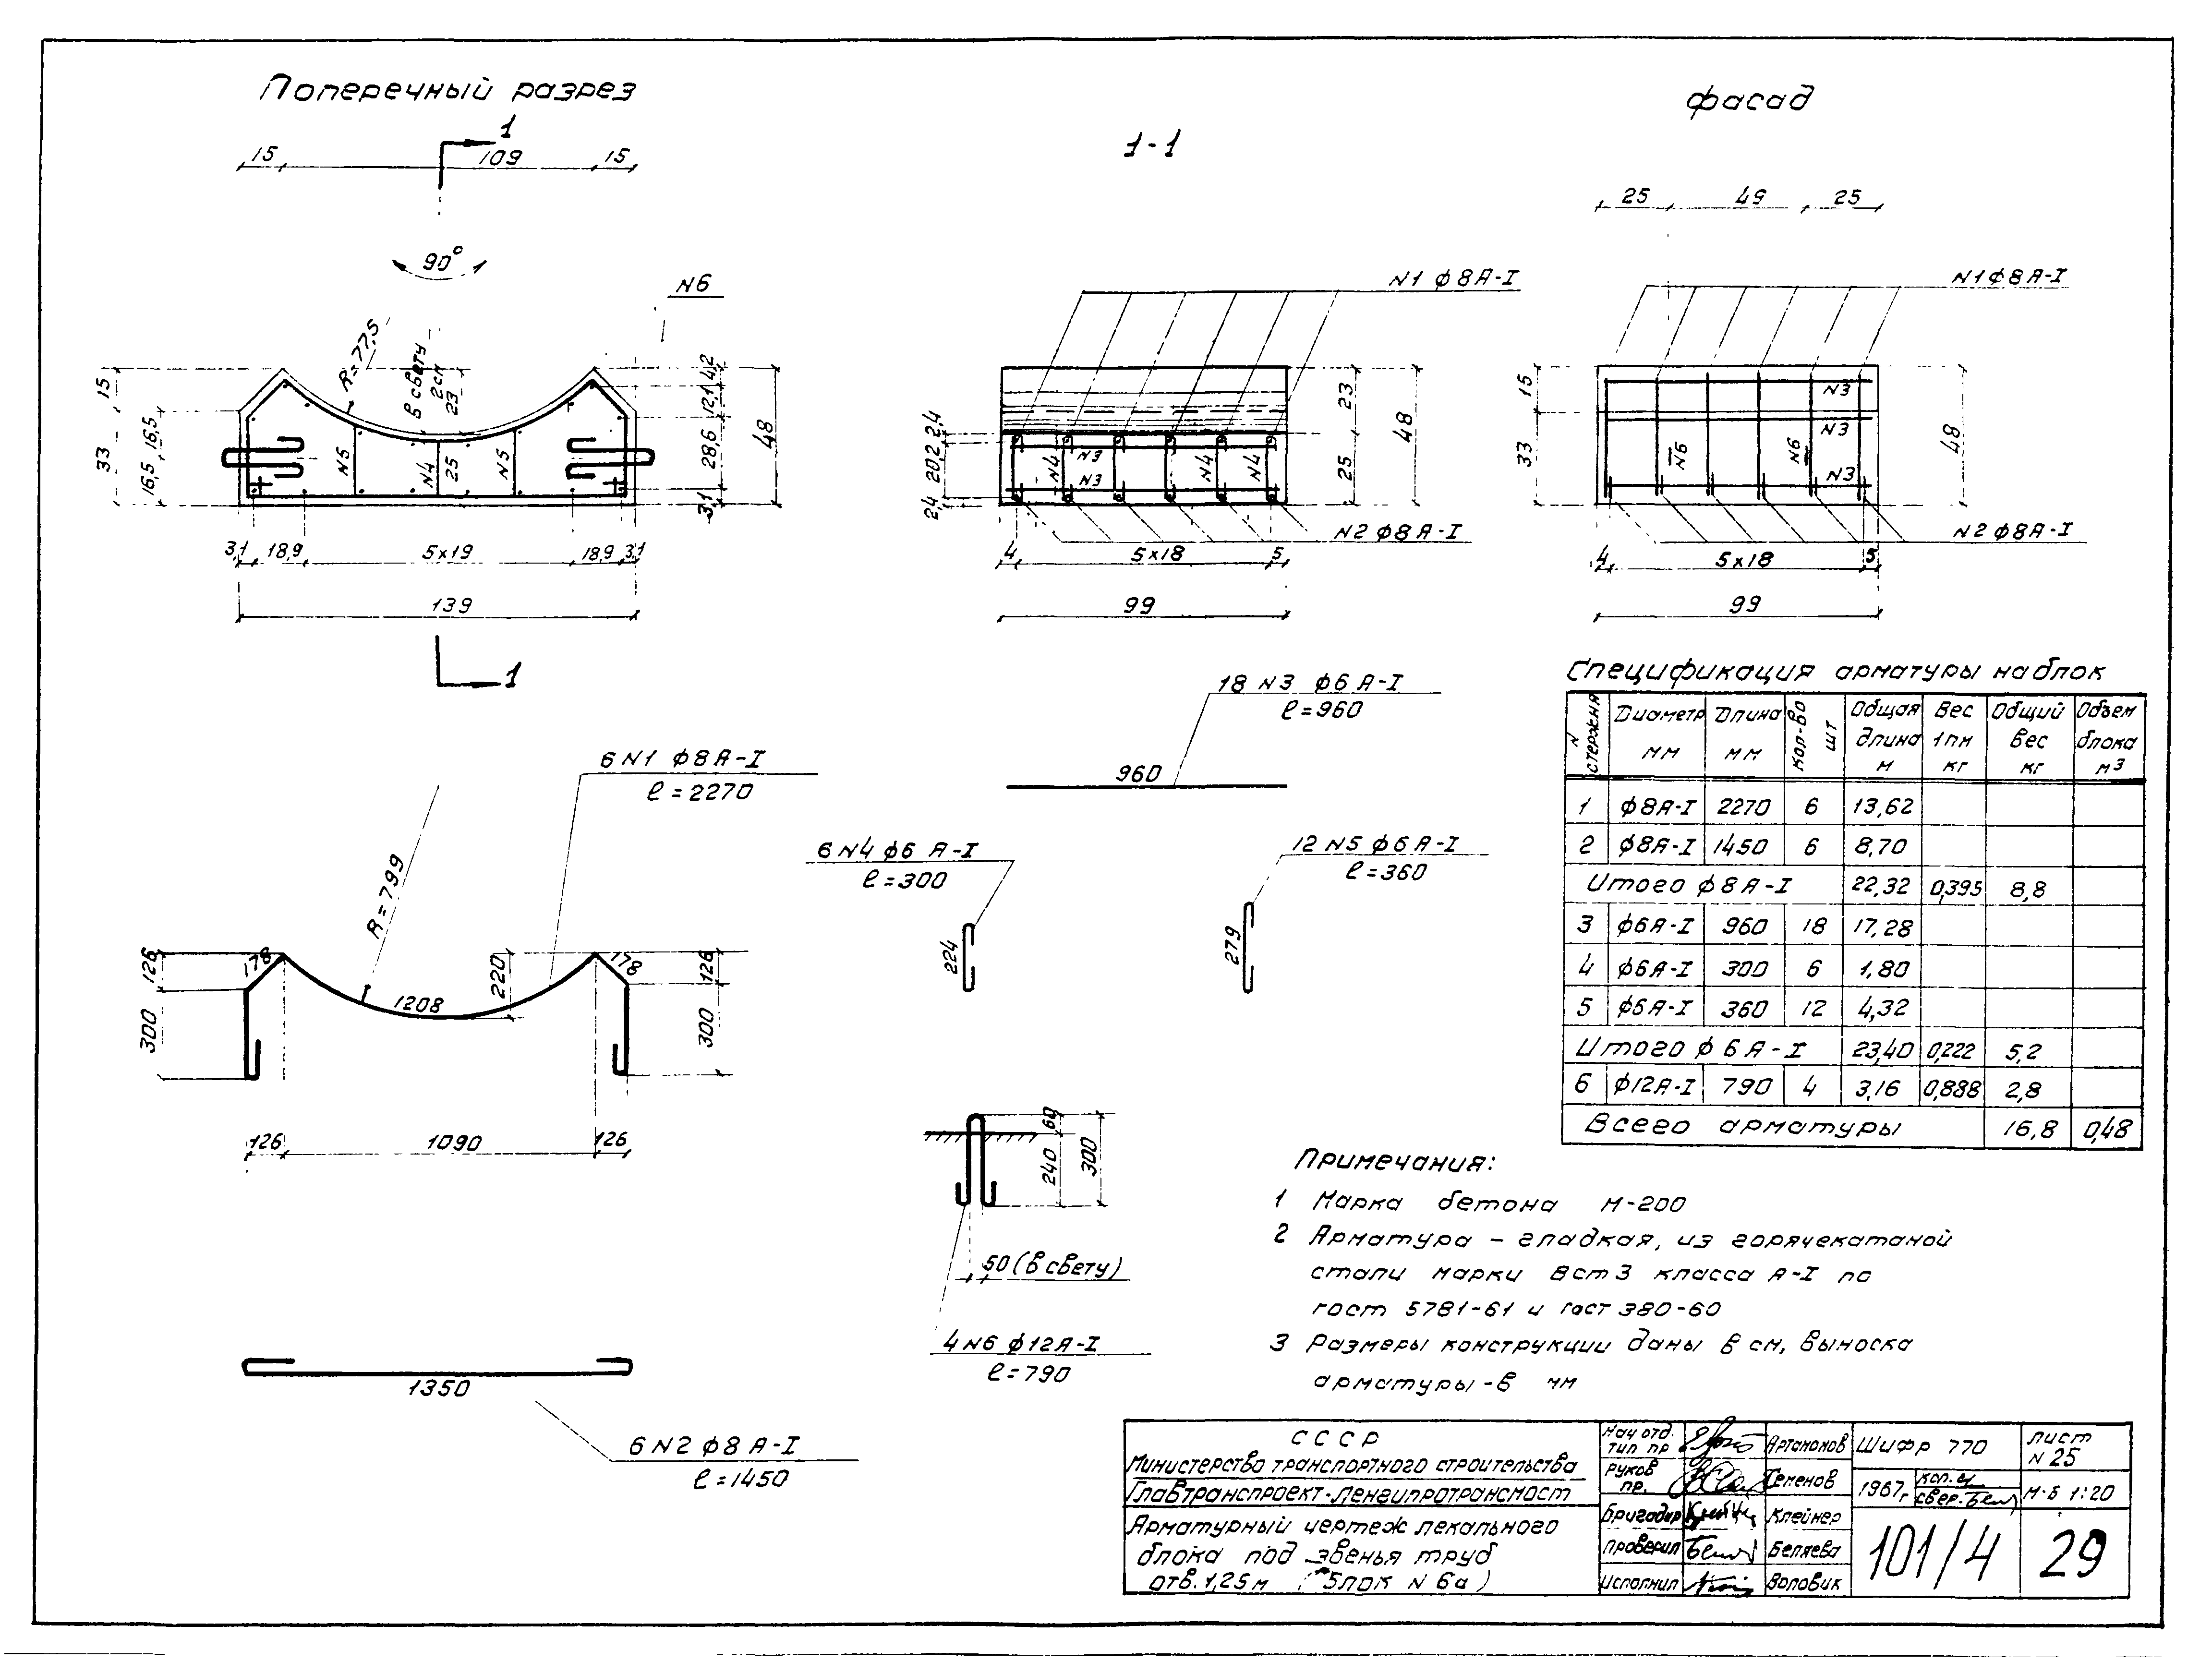 Поперечный разрез
1
15 109 15
90°
N6
R=77,5
В свету
2см
23
15
33
16,5
16,5
N5
N4
25
N5
4,2
12,1
28,6
3,1
48
3,1 18,9 5х19 18,9 3,1
139
1
1-1
N1 ф8А-I
2,4
20,2
2,4
N4
N3
N3
N4
N4
23
25
48
N2 ф8А-I
4 5х18 5
99
фасад
25 49 25
N1ф8А-I
15
33
N3
N3
N6
N6
N3
48
N2 ф8А-I
4 5х18 5
99
6 N1 ф8А-I
ℓ=2270
R=799
126
300
178
1208
220
178
126
300
126 1090 126
1350
6 N2 ф8 А-I
ℓ=1450
18 N3 ф6 А-I
ℓ=960
960
6 N4 ф6 А-I
ℓ=300
224
12 N5 ф6 А-I
ℓ=360
279
60
240
300
50 (в свету)
4 N6 ф12А-I
ℓ=790
Спецификация арматуры на блок
N стержня | Диаметр мм | Длина мм | Кол-во шт | Общая длина м | Вес 1пм кг | Общий вес кг | Объем блока м3
1 ф8А-I 2270 6 13,62
2 ф8А-I 1450 6 8,70
Итого ф8А-I 22,32 0,395 8,8
3 ф6А-I 960 18 17,28
4 ф6А-I 300 6 1,80
5 ф6А-I 360 12 4,32
Итого ф6А-I 23,40 0,222 5,2
6 ф12А-I 790 4 3,16 0,888 2,8
Всего арматуры 16,8 0,48
Примечания:
1 Марка бетона М-200
2 Арматура - гладкая, из горячекатаной
стали марки Вст3 класса А-I по
гост 5781-61 и гост 380-60
3 Размеры конструкции даны в см, выноска
арматуры-в мм
СССР
Министерство транспортного строительства
Главтранспроект-Ленгипротрансмост
Арматурный чертеж лекального
блока под звенья труб
отв. 1,25м (Блок N 6а)
Нач отд.
тип пр Артамонов
Руков
пр. Семенов
Бригадир Клейнер
Проверил Беляева
Исполнил Воловик
Шифр 770
лист
N 25
1967г
коп.
свер. Бел
М-б 1:20
101/4
29